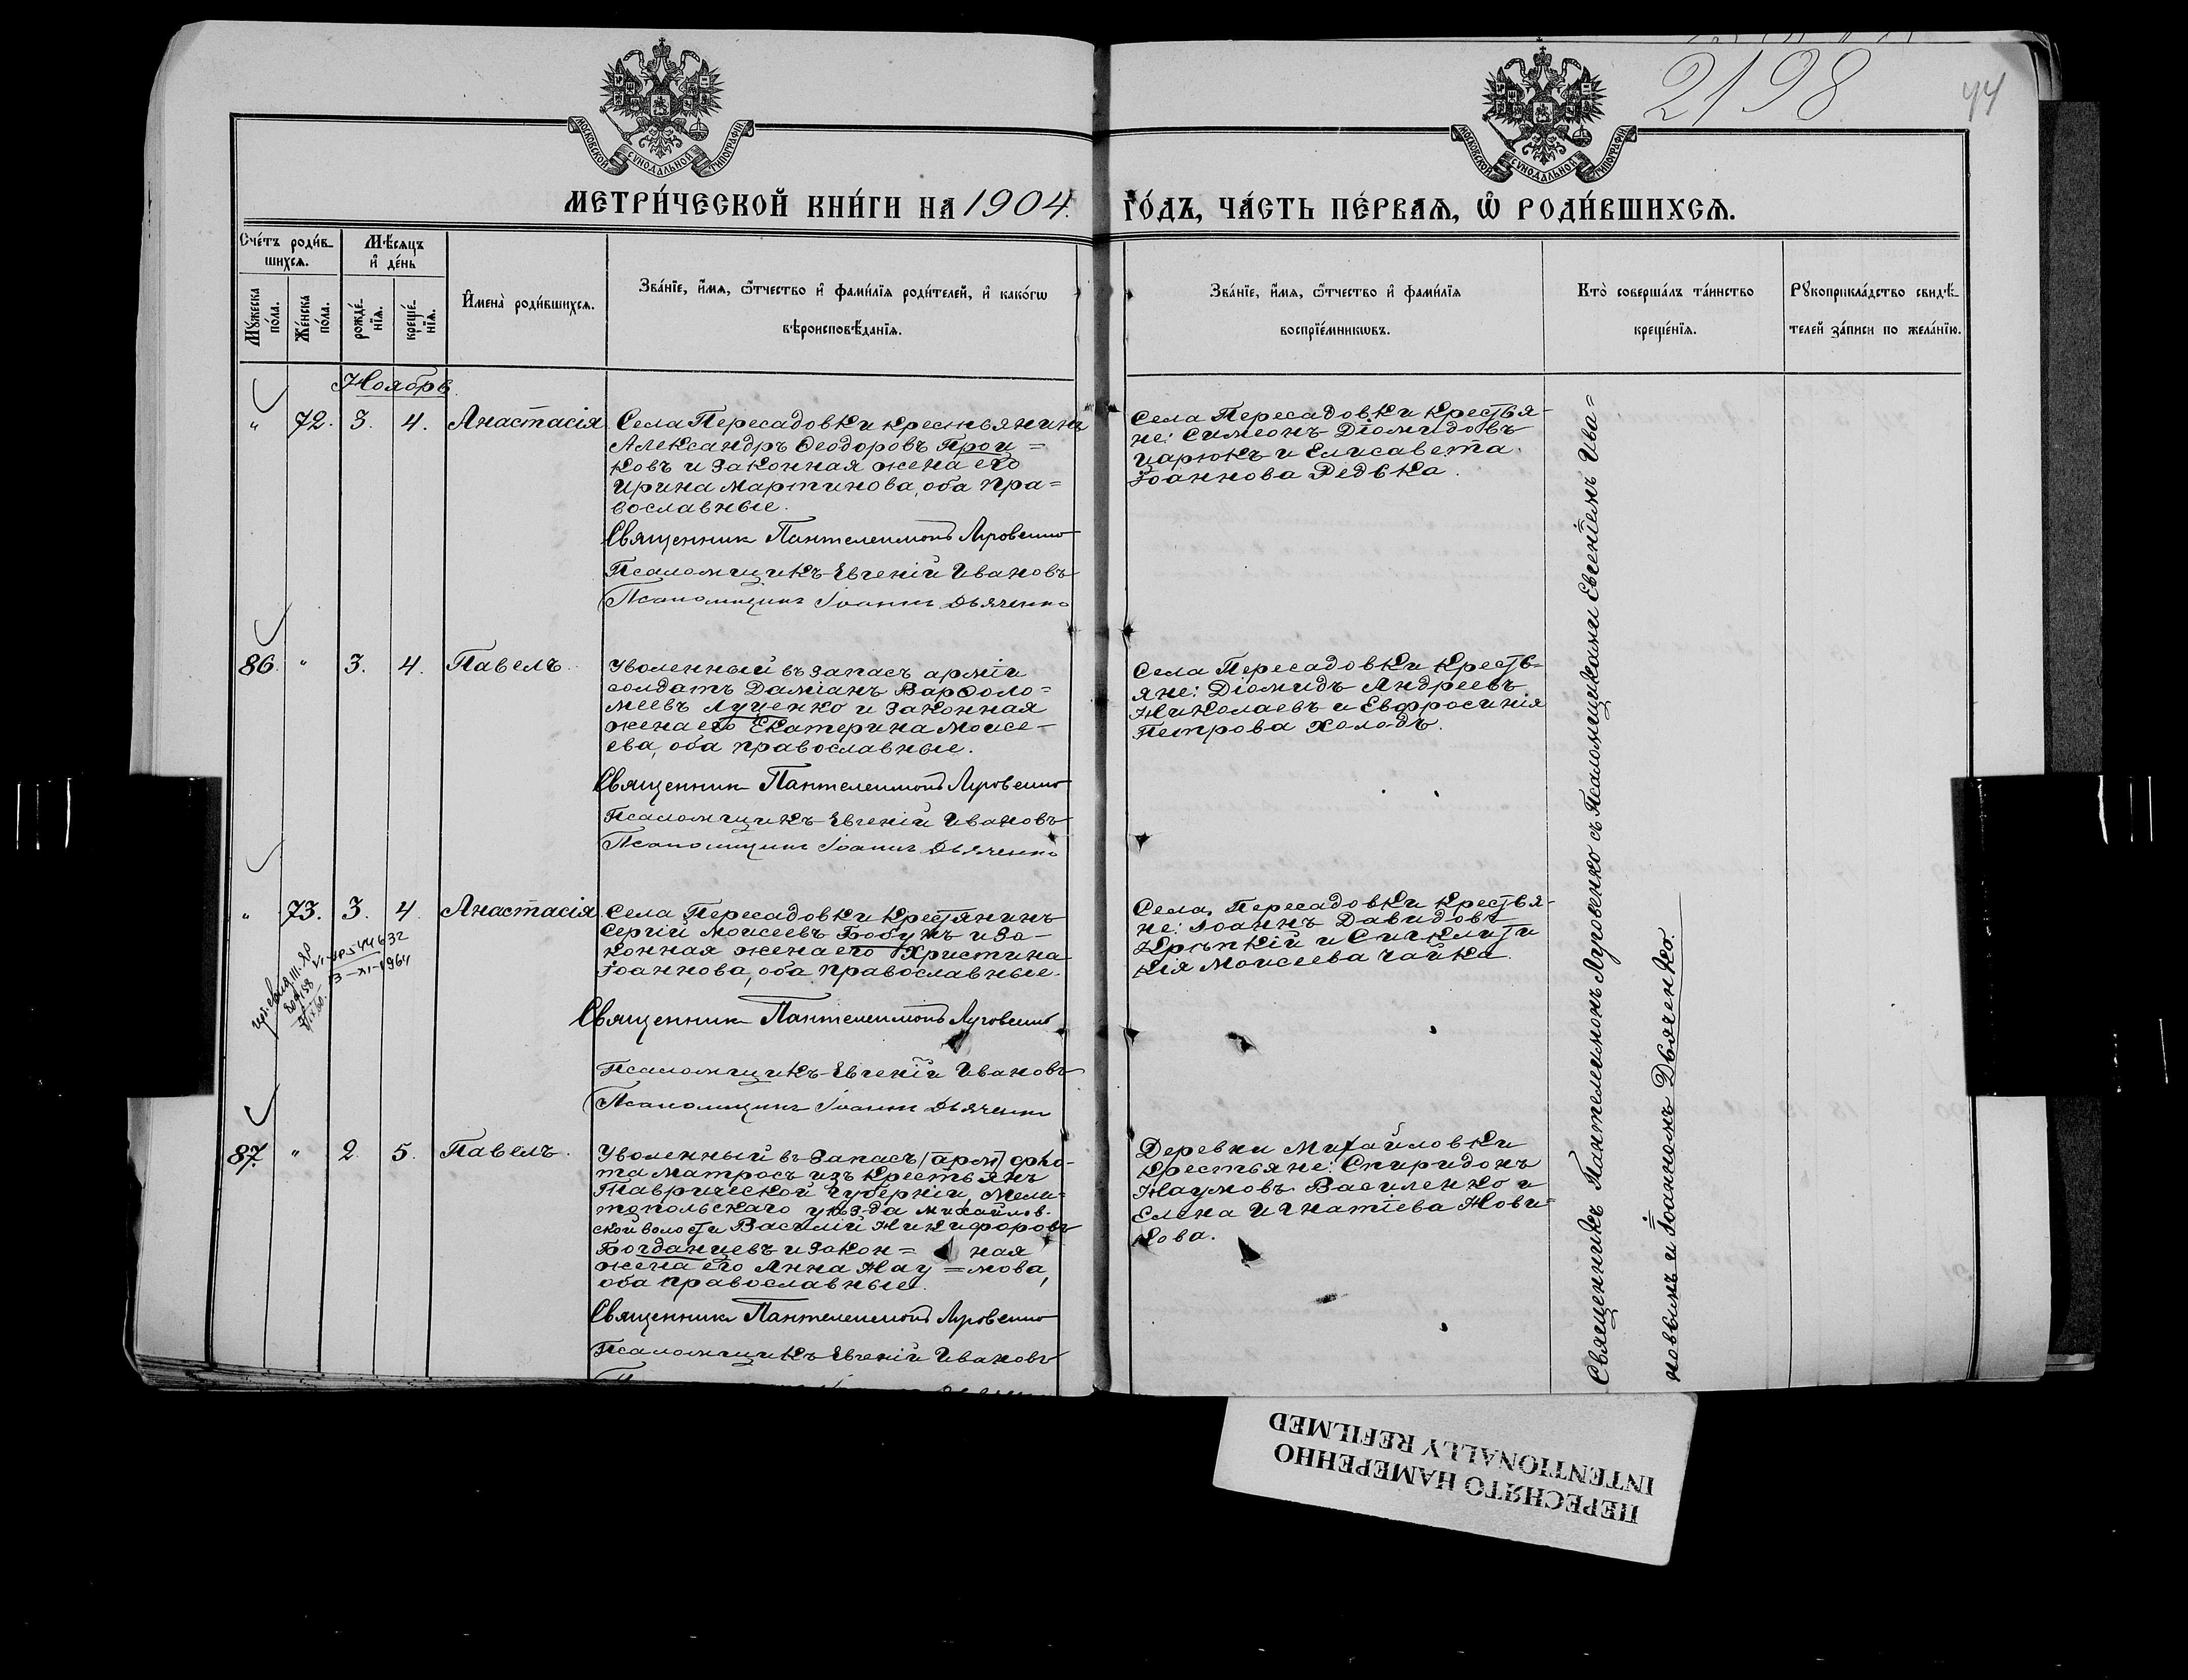 2198
44
МОСКОВСКОЙ СѴНОДАЛЬНОЙ ТИПОГРАФІИ
МОСКОВСКОЙ СѴНОДАЛЬНОЙ ТИПОГРАФІИ
МЕТРИ́ЧЕСКОЙ КНИ́ГИ НА 1904. ГО́ДЪ, ЧА́СТЬ ПЕ́РВАѦ, Ѡ҆ РОДИ́ВШИХСѦ.
Сче́тъ роди́в-
шихсѧ.
Мѣ́сѧцъ
и҆ де́нь
Мꙋ́жеска
по́ла.
Же́нска
по́ла.
рожде́-
нїѧ.
креще́-
нїѧ.
И҆мена̀ роди́вшихсѧ.
Зва́нїе, и҆́мѧ, ѻ҆́тчество и҆ фами́лїѧ роди́телей, и҆ како́гѡ
вѣроисповѣ́данїѧ.
Зва́нїе, и҆́мѧ, ѻ҆́тчество и҆ фами́лїѧ
воспрїе́мникѡвъ.
Кто̀ соверша́лъ та́инство
креще́нїѧ.
Рꙋкоприкла́дство свидѣ́-
телей за́писи по жела́нїю.
Ноябрь
" 72. 3. 4. Анастасія
Села Пересадовки крестьянинъ
Александръ Ѳеодоровъ Прои=
ковъ и законная жена его
Ирина Мартинова, оба пра=
вославные.
Священник Пантелеимонъ Луговенко
Псаломщикъ Евгеній Ивановъ
Псаломщикъ Іоаннъ Дьяченко
Села Пересадовки крестья-
не: Симеонъ Діомидовъ
Царюкъ и Елисавета
Іоаннова Редька.
86. " 3. 4. Павелъ.
Уволенный въ запасъ арміи
солдатъ Даміанъ Варѳоло=
меевъ Луценко и законная
жена его Екатерина Моисе-
ева, оба православные.
Священник Пантелеимонъ Луговенко
Псаломщикъ Евгеній Ивановъ
Псаломщикъ Іоаннъ Дьяченко
Села Пересадовки кресть-
яне: Діомидъ Андреевъ
Николаевъ и Евфросинія
Петрова Холодъ.
" 73. 3. 4. Анастасія
Села Пересадовки крестянинъ
Сергій Моисеевъ Бобужъ и за-
конная жена его Христина
Іоаннова, оба православные.
Священник Пантелеимонъ Луговенко
Псаломщикъ Евгеній Ивановъ
Псаломщикъ Іоаннъ Дьяченко
Села Пересадовки крестья-
не: Іоаннъ Давидовъ
Крѣпкій и Сигклити
кія Моисеева Чайка.
3-XI-1964
87. " 2. 5. Павелъ.
Уволенный въ запасъ (арм) фло-
та матросъ изъ крестьянъ
Таврической губерніи, Мели-
топольскаго уѣзда Михайлов-
ской волости Василій Никифоровъ
Богданцевъ и закон= ная
жена его Анна Нау =мова,
оба православные.
Священник Пантелеимонъ Луговенко
Псаломщикъ Евгеній Ивановъ
Деревни Михайловки
крестьяне: Спиридонъ
Наумовъ Василенко и
Елена Игнатіева Нови=
кова.
Священникъ Пантелеимонъ Луговенко съ Псаломщиками Евгеніемъ Ива=
новымъ и Іоанномъ Дьяченко.
ПЕРЕСНЯТО НАМЕРЕННО
INTENTIONALLY REFILMED